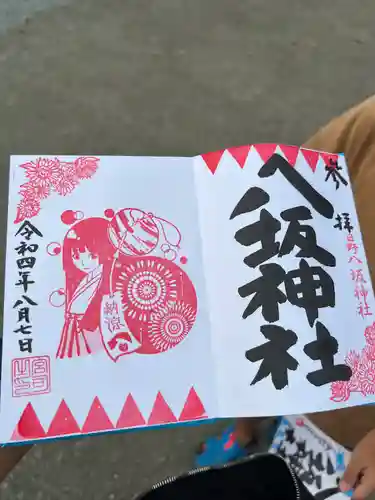 参拝
日野八坂神社
八坂神社
納涼
令和四年八月七日